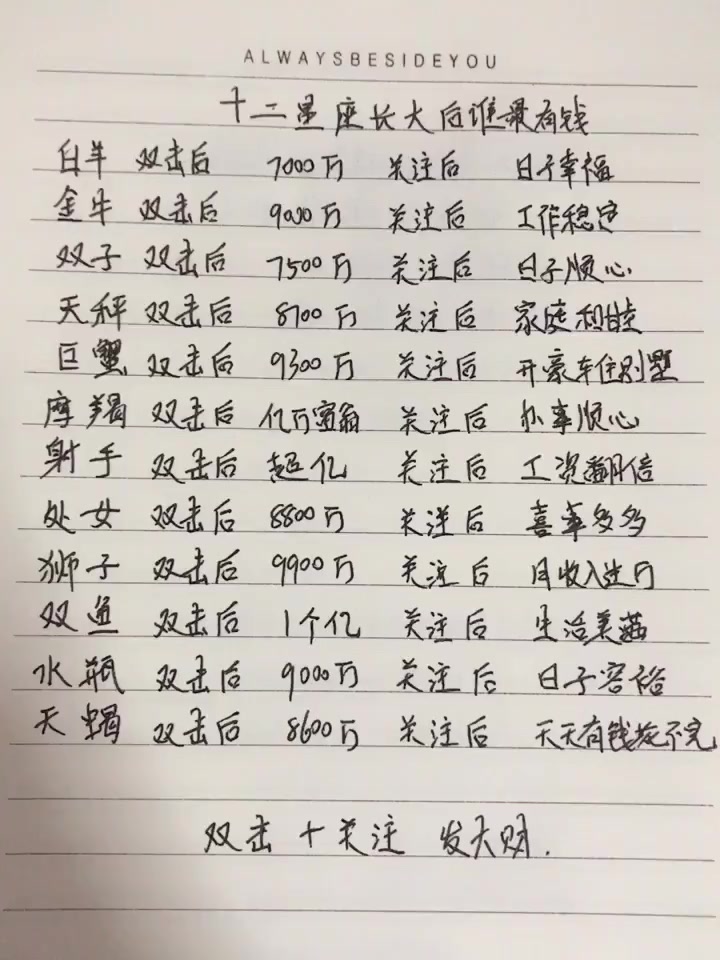 ALWAYSBESIDEYOU
十二星座长大后谁最有钱
白羊 双击后 7000万 关注后 日子幸福
金牛 双击后 9000万 关注后 工作稳定
双子 双击后 7500万 关注后 日子顺心
天秤 双击后 8700万 关注后 家庭和睦
巨蟹 双击后 9300万 关注后 开豪车住别墅
摩羯 双击后 亿万富翁 关注后 办事顺心
射手 双击后 超亿 关注后 工资翻倍
处女 双击后 8800万 关注后 喜事多多
狮子 双击后 9900万 关注后 月收入过万
双鱼 双击后 1个亿 关注后 生活美满
水瓶 双击后 9000万 关注后 日子容裕
天蝎 双击后 8600万 关注后 天天有钱花不完
双击+关注 发大财.